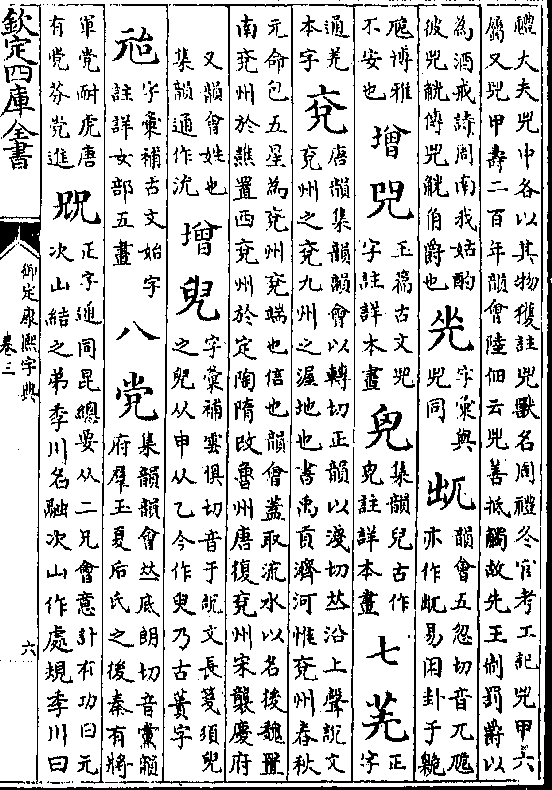 禮大夫兕中各以其物獲註兕獸名周禮冬官考工記兕甲六
屬又兕甲壽二百年韻會陸佃云兕善抵觸故先王制罰爵以
為酒戒詩周南我姑酌
彼兕觥傳兕觥伯爵也
字彙與
兕同
韻會五忽切音兀卼
亦作卼易困卦于臲
卼博雅
不安也
增
正譌古文兕
字註詳本畫
皃
集韻兒古作
皃註詳本畫
七
羌
正
字
通羌
本字
兗
唐韻集韻韻會以轉切正韻以淺切𠀤沿上聲說文
兗州之兗九州之渥地也書禹貢濟河惟兗州春秋
元命包五星為兗州兗蝺也信也韻會蓋取流水以名後魏置
南兗州於譙置西兗州於定陶隋改魯州唐復兗州宋襲慶府
又韻會姓也
集韻通作沇
增
字彙補雲俱切音于說文長箋須臾
之臾从申从乙今作臾乃古蕢字
字彙補古文始字
註詳女部五畫
八
党
集韻韻會𠀤底朗切音黨韻
府羣玉夏后氏之後秦有將
軍党耐虎唐
有党芬党進
正字通同昆總要从二兄會意計有功曰元
次山結之弟季川名融次山作處規季川曰
欽定四庫全書
御定康熙字典
卷三
六